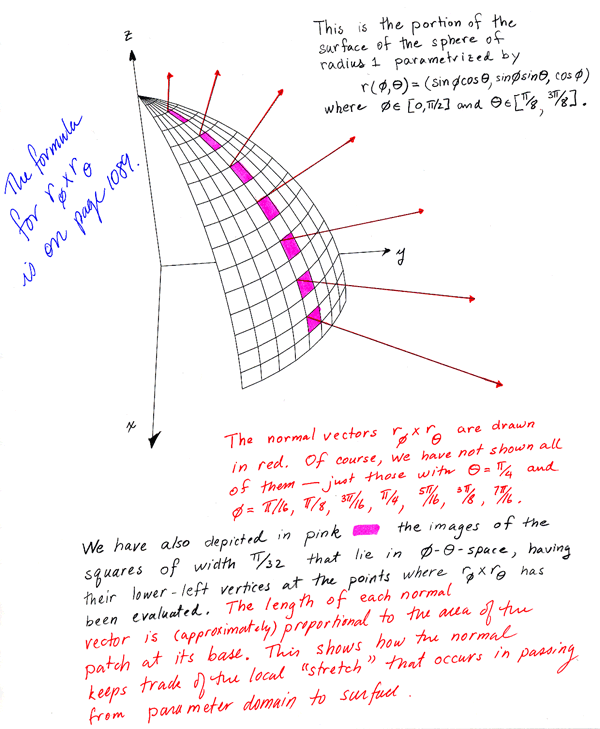 This is the portion of the
surface of the sphere of
radius 1 parametrized by
r(ϕ,θ) = (sinϕcosθ, sinϕsinθ, cosϕ)
where ϕ∈[0,π/2] and θ∈[π/8, 3π/8].
z
The formula
for r_ϕ × r_θ
is on page 1089.
y
x
The normal vectors r_ϕ × r_θ are drawn
in red. Of course, we have not shown all
of them — just those with θ = π/4 and
ϕ = π/16, π/8, 3π/16, π/4, 5π/16, 3π/8, 7π/16.
We have also depicted in pink the images of the
squares of width π/32 that lie in ϕ-θ-space, having
their lower-left vertices at the points where r_ϕ × r_θ has
been evaluated. The length of each normal
vector is (approximately) proportional to the area of the
patch at its base. This shows how the normal
keeps track of the local "stretch" that occurs in passing
from parameter domain to surface.